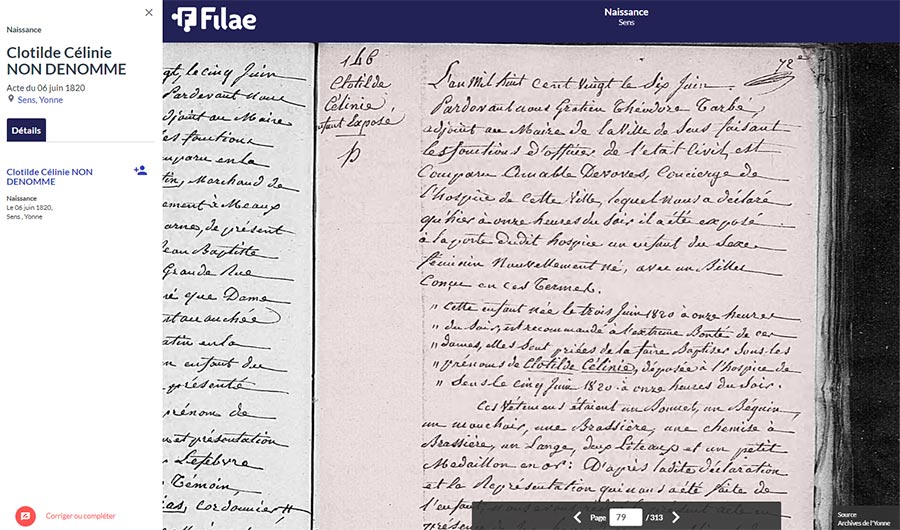 Naissance
Clotilde Célinie
NON DENOMME
Acte du 06 juin 1820
Sens, Yonne
Détails
Clotilde Célinie NON
DENOMME
Naissance
Le 06 juin 1820,
Sens, Yonne
Corriger ou compléter
Filae
Naissance
Sens
gt, le cinq Juin
Pardevant nous
adjoint au Maire
les fonctions
comparu en la
Marchand de
à Meaux
de présent
Jean Baptiste
Grande Rue
que Dame
accouchée
en la
enfant du
présenté
prénom de
et présentation
Lefebvre
Témoin,
cordonnier
146
Clotilde
Célinie
enfant Exposé
72e
L'an Mil huit Cent vingt le Six Juin
Pardevant nous Gratien Théodore Tarbé,
adjoint au Maire de la Ville de Sens faisant
les fonctions d'officier de l'état Civil, est
Comparu Amable Devoves, Concierge de
l'hospice de Cette Ville, lequel nous a déclaré
qu'hier à onze heures du Soir il a été exposé
à la porte dudit hospice un enfant du Sexe
féminin Nouvellement né, avec un Billet
Conçu en ces Termes.
" Cette enfant née le trois Juin 1820 à onze heures
" du Soir, est recommandé à l'extreme Bonté de ces
" dames, elles sont priées de la faire Baptiser Sous les
" prénoms de Clotilde Célinie, déposée à l'hospice de
" Sens le cinq Juin 1820 à onze heures du Soir.
Ces Vêtemens étaient un Bonnet, un Béguin,
un mouchoir, une Brassière, une chemise à
Brassière, un Lange, deux Liteaux et un petit
Medaillon en or : D'après ladite déclaration
et la Représentation qui nous a été faite de
l'enfant,
Page 79 / 313
Source
Archives de l'Yonne